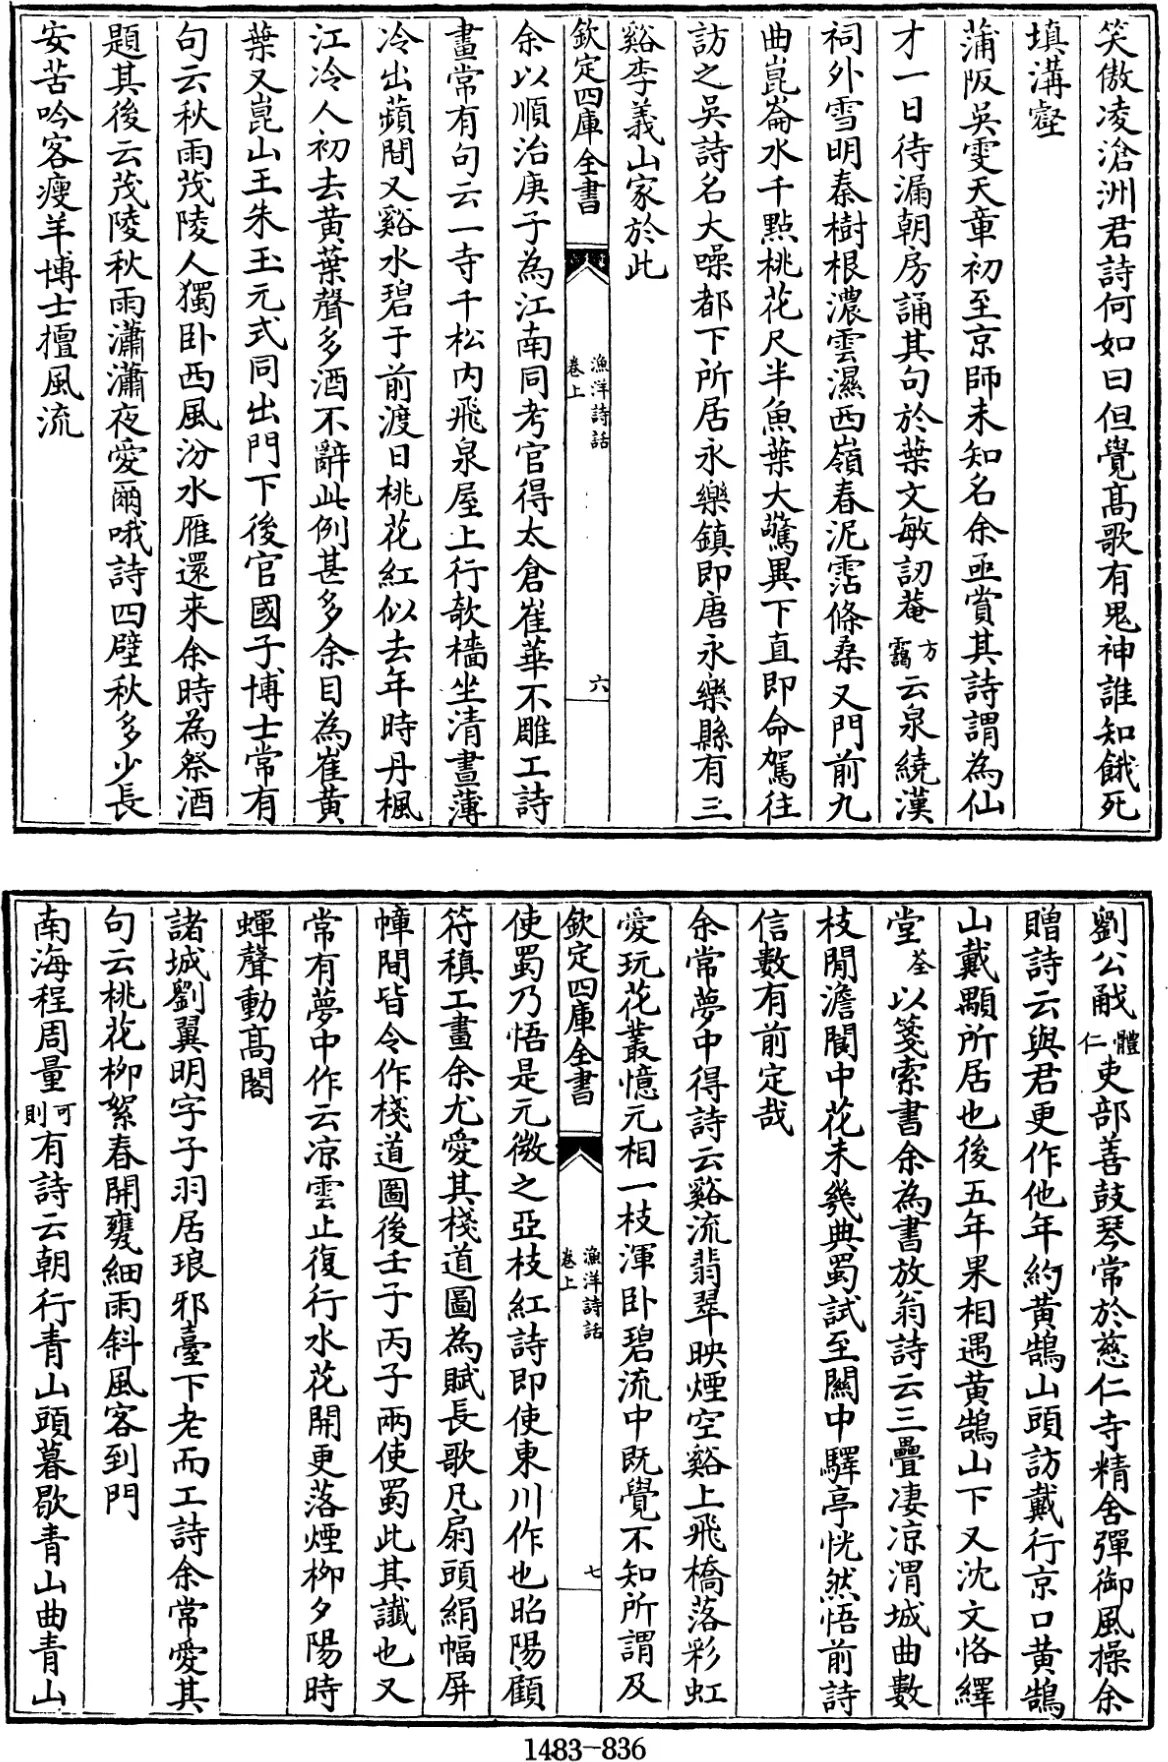 笑傲凌滄洲君詩何如曰但覺髙歌有鬼神誰知餓死
填溝壑
蒲阪吳雯天章初至京師未知名余亟賞其詩謂為仙
才一日待漏朝房誦其句於葉文敏訒菴方靄云泉繞漢
祠外雪明秦樹根濃雲濕西嶺春泥霑條桑又門前九
曲崑崙水千點桃花尺半魚葉大驚異下直即命駕往
訪之吳詩名大噪都下所居永樂鎮即唐永樂縣有三
谿李義山家於此
欽定四庫全書
漁洋詩話
卷上
六
余以順治庚子為江南同考官得太倉崔華不雕工詩
畫常有句云一寺千松内飛泉屋上行欹檣坐清晝薄
冷出蘋間又谿水碧于前渡日桃花紅似去年時丹楓
江冷人初去黄葉聲多酒不辭此例甚多余目為崔黄
葉又崑山王朱玉元式同出門下後官國子博士常有
句云秋雨茂陵人獨卧西風汾水雁還來余時為祭酒
題其後云茂陵秋雨瀟瀟夜愛爾哦詩四壁秋多少長
安苦吟客瘦羊博士擅風流
劉公㦷體仁吏部善鼓琴常於慈仁寺精舍彈御風操余
贈詩云與君更作他年約黄鵠山頭訪戴行京口黄鵠
山戴顒所居也後五年果相遇黄鵠山下又沈文恪繹
堂荃以箋索書余為書放翁詩云三疊凄凉渭城曲數
枝閒澹閬中花未幾典蜀試至閬中驛亭恍然悟前詩
信數有前定哉
余常夢中得詩云谿流翡翠映煙空谿上飛橋落彩虹
愛玩花叢憶元相一枝渾卧碧流中既覺不知所謂及
欽定四庫全書
漁洋詩話
卷上
七
使蜀乃悟是元微之亞枝紅詩即使東川作也昭陽顧
符稹工畫余尤愛其棧道圖為賦長歌凡扇頭絹幅屏
幛間皆令作棧道圖後壬子丙子兩使蜀此其讖也又
常有夢中作云凉雲止復行水花開更落煙柳夕陽時
蟬聲動髙閣
諸城劉翼明字子羽居琅邪臺下老而工詩余常愛其
句云桃花柳絮春開甕細雨斜風客到門
南海程周量可則有詩云朝行青山頭暮歇青山曲青山
1483-836